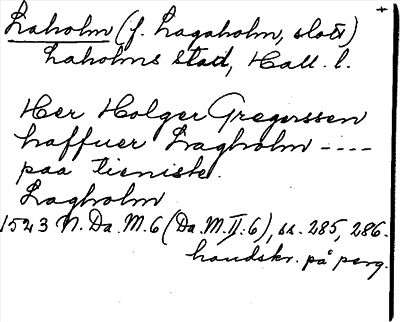 Laholm (f. Lagaholm, slott) +
Laholms stad, Hall. l.
Her Holger Gregerssen
haffuer Lagholm ----
paa tieniste.
Lagholm
1523 N. Da. M. 6 (Da. M. II. 6), ss. 285, 286.
handskr. på perg.